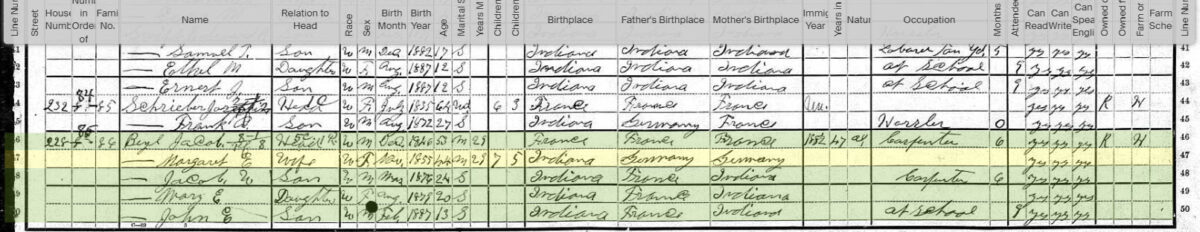 Line Num Street House Number Numb in Order of Fami No. Name Relation to Head Race Sex Birth Month Birth Year Age Marital S Years M Children Children Birthplace Father's Birthplace Mother's Birthplace Immig Year Years in Natur Occupation Months Attended Can Read Can Write Can Spea Engli Owned o Owned f Farm or Farm Sche Line Num
41 — Samuel T. Son W M Dec 1882 17 S Indiana Indiana Indiana Laborer 5 yes yes yes 41
42 — Ethel M Daughter W F Aug 1887 12 S Indiana Indiana Indiana at School 9 yes yes yes 42
43 — Ernest J. Son W M Aug 1887 12 S Indiana Indiana Indiana at School 9 yes yes yes 43
44 232 84 85 Schrieber Head W F July 1835 64 Wd 6 3 France France France Un. yes yes yes R H 44
45 — Frank Son W M Aug 1872 27 S Indiana Germany France 0 yes yes yes 45
46 228 85 86 Beyl Jacob Head W M Dec 1846 53 M 25 France France France 1852 47 al Carpenter 6 yes yes yes R H 46
47 — Margaret E Wife W F Nov 1855 44 M 25 7 5 Indiana Germany Germany yes yes yes 47
48 — Jacob W Son W M Mar 1876 24 S Indiana France Indiana Carpenter 6 yes yes yes 48
49 — Mary E Daughter W F Aug 1879 20 S Indiana France Indiana yes yes yes 49
50 — John E Son W M Feb 1887 13 S Indiana France Indiana at school 8 yes yes yes 50